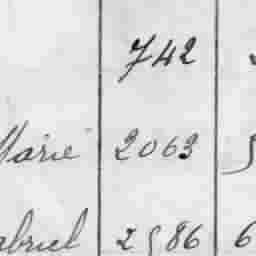 742
Marie 2063 5
abriel 2586 6